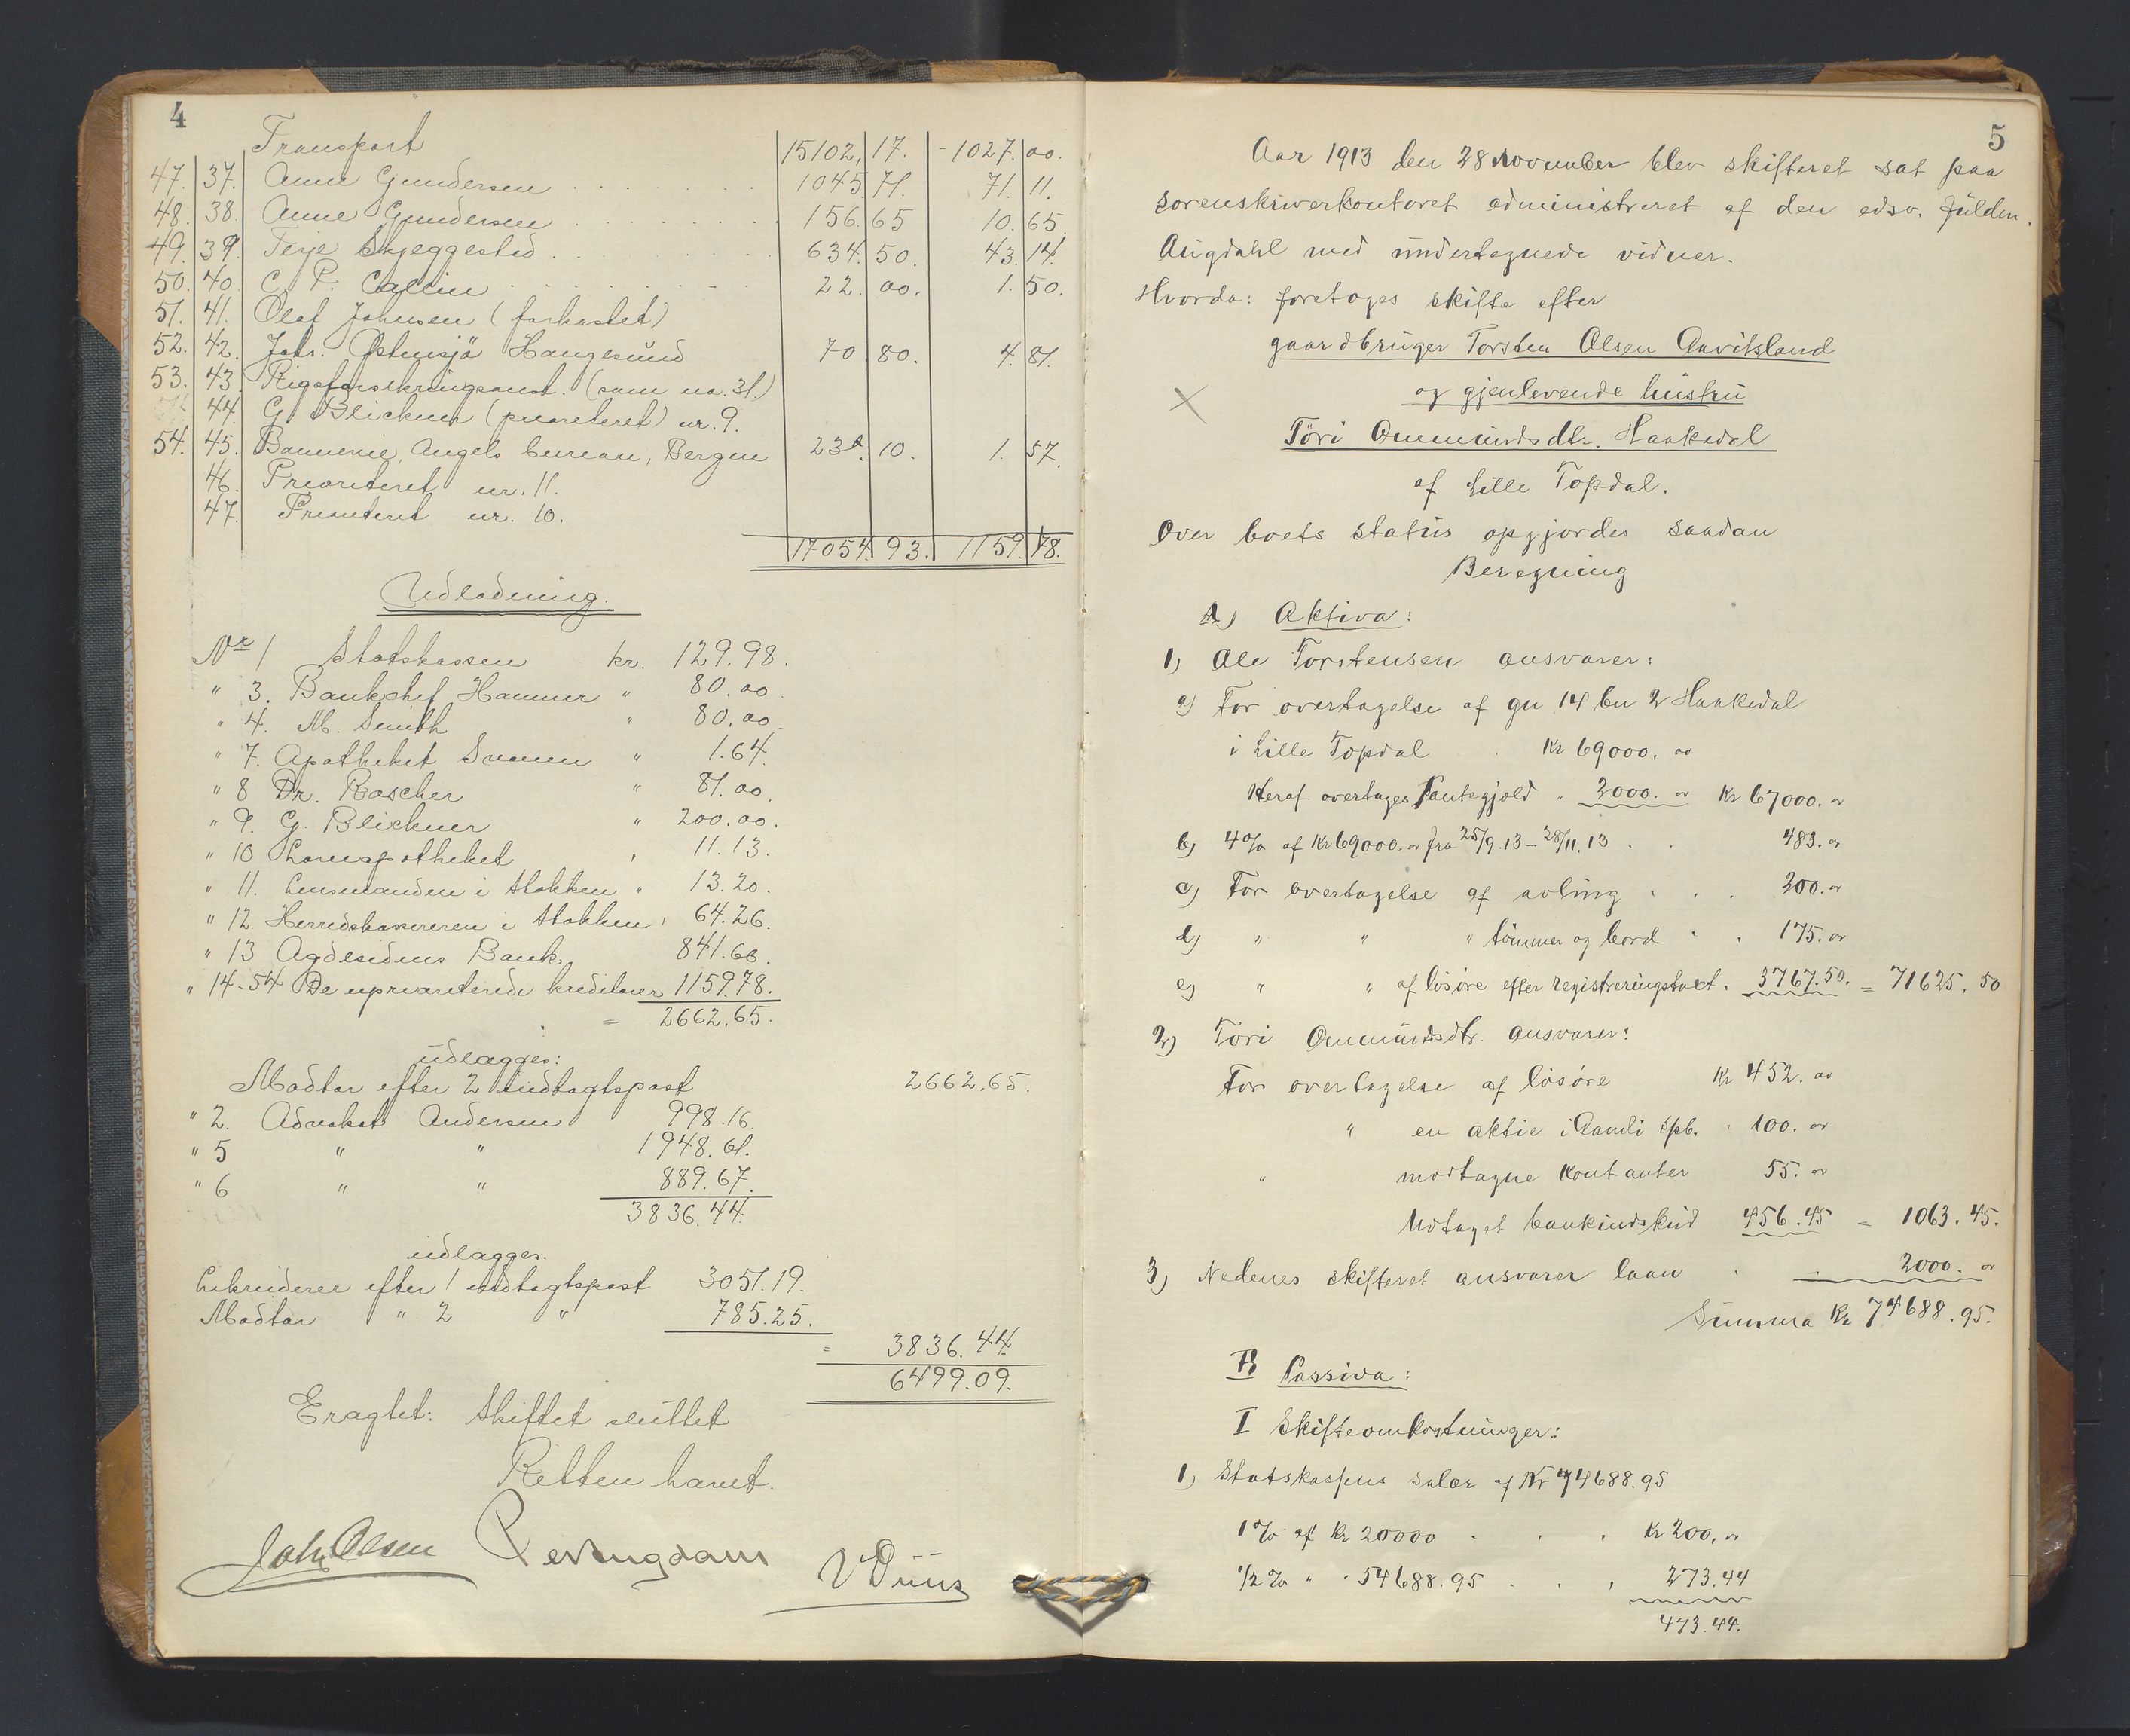 4
Transport 15102,17. - 1027.00.
47. 37. Anne Gundersen 1045 71. 71. 11.
48. 38. Anne Gundersen 156.65 10.65
49. 39. Terje Skjeggestad 634.50. 43.14.
50. 40. C. P. Callin 22.00. 1.50.
51. 41. Olaf Johnsen (forkastet)
52. 42. Johs. Østensjö Haugesund 70.80. 4.81.
53. 43 Rigsforsikringsanst. (som no. 31.)
44. G. Blickner (prioriteret) nr. 9.
54. 45. Angels bureau, Bergen 23.10. 1.57.
46. Prioriteret nr. 11.
47. Prioriteret nr. 10.
17054.93. 1159.78.
Udlodning.
Nr 1 Statskassen kr. 129.98.
" 3. Bankchef Hammer " 80.00.
" 4. M. Smith " 80.00.
" 7. Apotheket Svanen " 1.64.
" 8 Dr. Rascher " 81.00.
" 9. G. Blickner " 200.00.
" 10 Løveapotheket " 11.13.
" 11. Lensmanden i Stokken " 13.20.
" 12. Herredskassereren i Stokken " 64.26.
" 13 Agdesidens Bank 841.66.
" 14-54 De uprioriterede kreditorer 1159.78.
= 2662.65.
udlægges:
Madtar efter 2 indtægtspost 2662.65.
" 2. Advokat Andersen 998.16.
" 5 " " 1948.61.
" 6 " " 889.67.
3836.44.
udlægges.
efter 1 indtægtspost 3051.19.
Madtar " 2 " 785.25.
= 3836.44
6499.09.
Eragtet: Skiftet sluttet
Retten hævet.
Joh. Olsen Per Augdahl
5
Aar 1913 den 28 november blev skifteret sat paa
sorenskriverkontoret administreret af den edsv. fuldm.
Augdahl med undertegnede vidner.
Hvorda: foretoges skifte efter
gaardbruger Torsten Olsen Aavitsland
og gjenlevende hustru
Töri Ommundsdtr. Haakedal
af Lille Topdal.
Over boets status opgjordes saadan
Beregning
A) Aktiva:
1) Ole Torstensen ansvarer:
a) For overtagelse af gn 14 bn 2 Haakedal
i Lille Topdal Kr 69000.00
Heraf overtages Pantegjæld " 2000.00 Kr 67000.00
b) 4% af Kr 69000.00 fra 25/9.13 - 28/11.13 483.00
c) For overtagelse af avling 200.00
d) " " " tömmer og bord 175.00
e) " " af lösöre efter registreringstaxt. 3767.50. = 71625.50
2) Tori Ommundsdtr. ansvarer:
For overtagelse af lösöre Kr 452.00
" en aktie i Aamli Spb. " 100.00
" modtagne Kontanter 55.00
Udtaget bankindskud 456.45 = 1063.45.
3) Nedenes skifteret ansvarer laan 2000.00
Summa Kr 74688.95.
B Passiva:
I Skifteomkostninger:
1) Statskassens salær af Kr 74688.95
1% af Kr 20000 Kr 200.00
1/2% " " 54688.95 273.44
473.44.